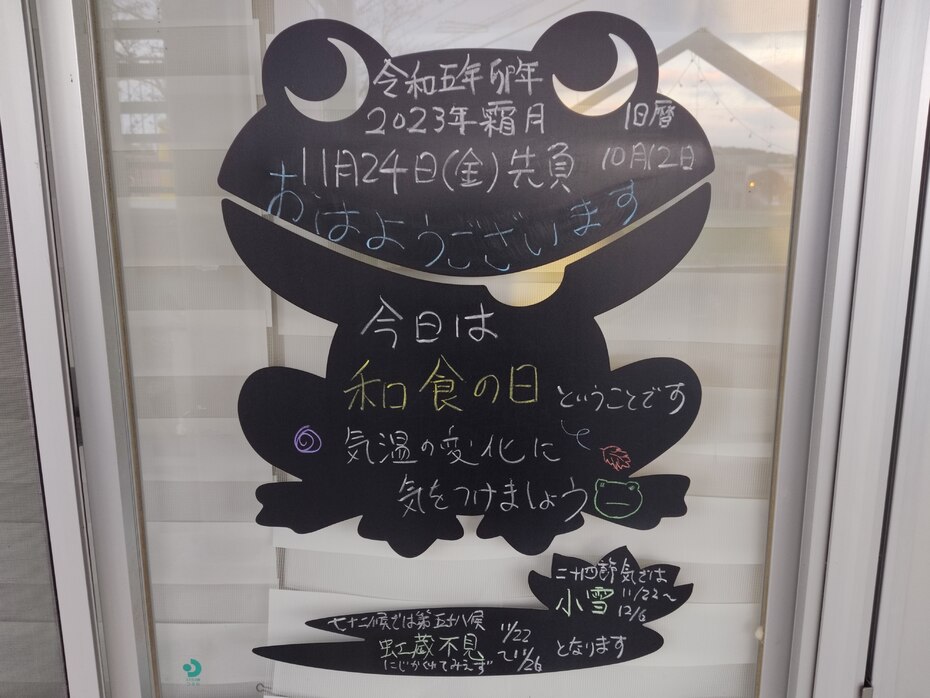 令和五年卯年
2023年霜月 旧暦
11月24日(金)先負 10月12日
おはようございます
今日は
和食の日 ということです
気温の変化に
気をつけましょう
二十四節気では
小雪 11/22〜
12/6
七十二候では第五十八候
虹蔵不見 11/22
にじかくれてみえず 〜11/26
となります